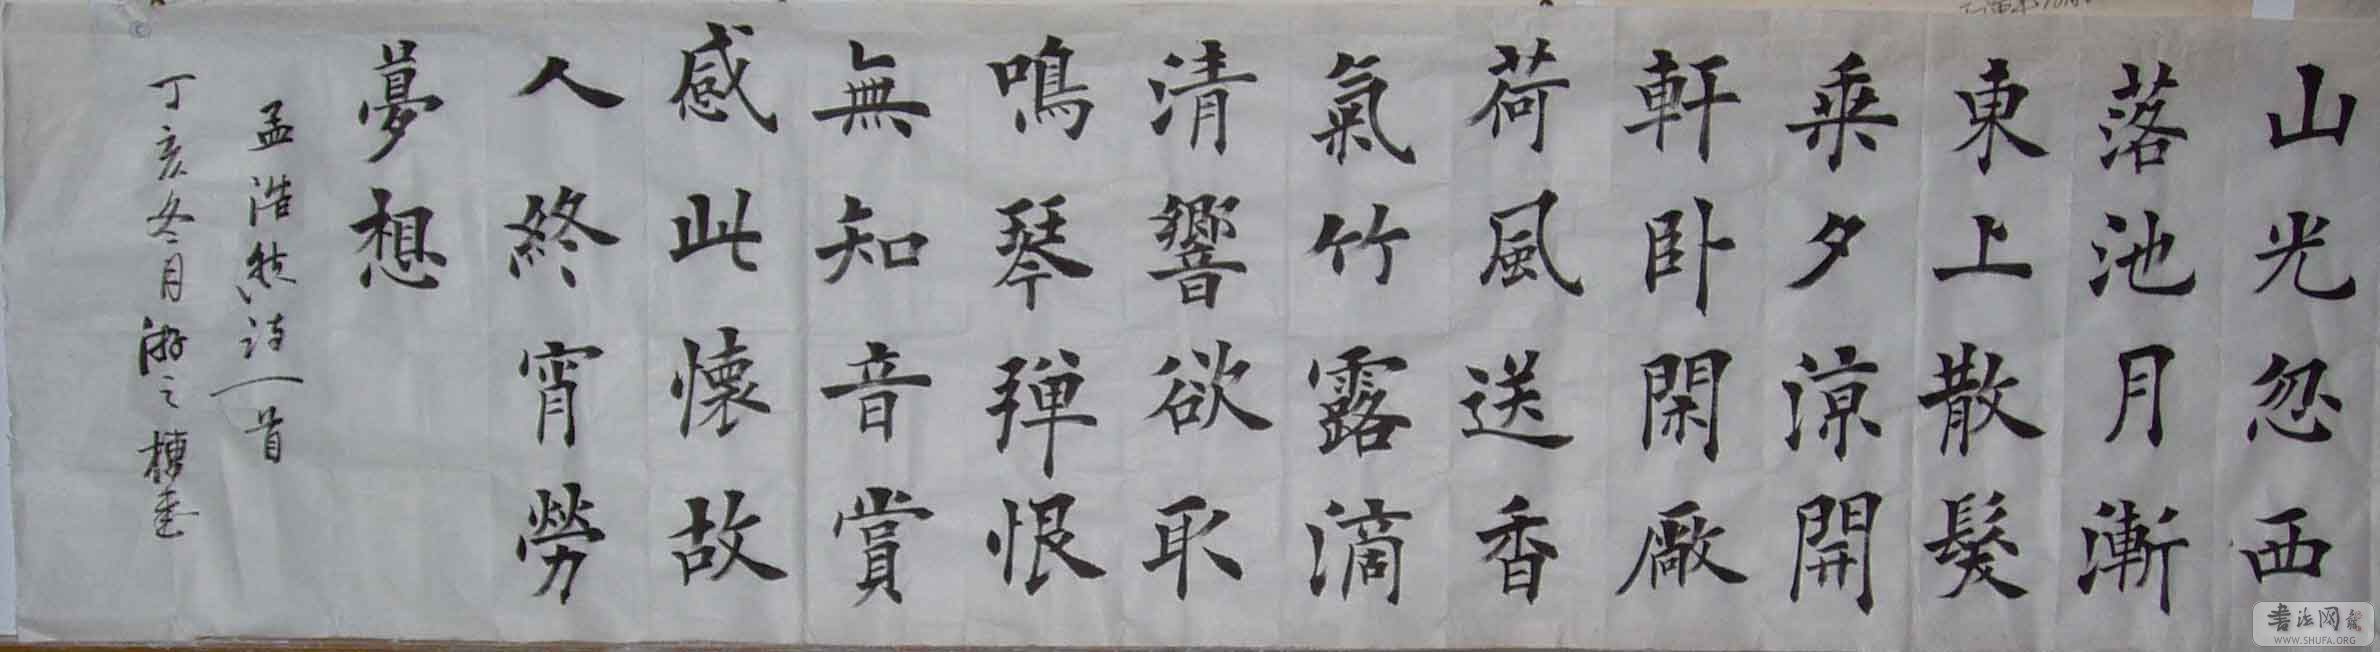 山光忽西
落池月漸
東上散髮
乗夕涼開
軒卧閑廠
荷風送香
氣竹露滴
清響欲取
鳴琴彈恨
無知音賞
感此懷故
人終宵勞
夢想
孟浩然诗一首
丁亥冬月
书法网
WWW.SHUFA.ORG